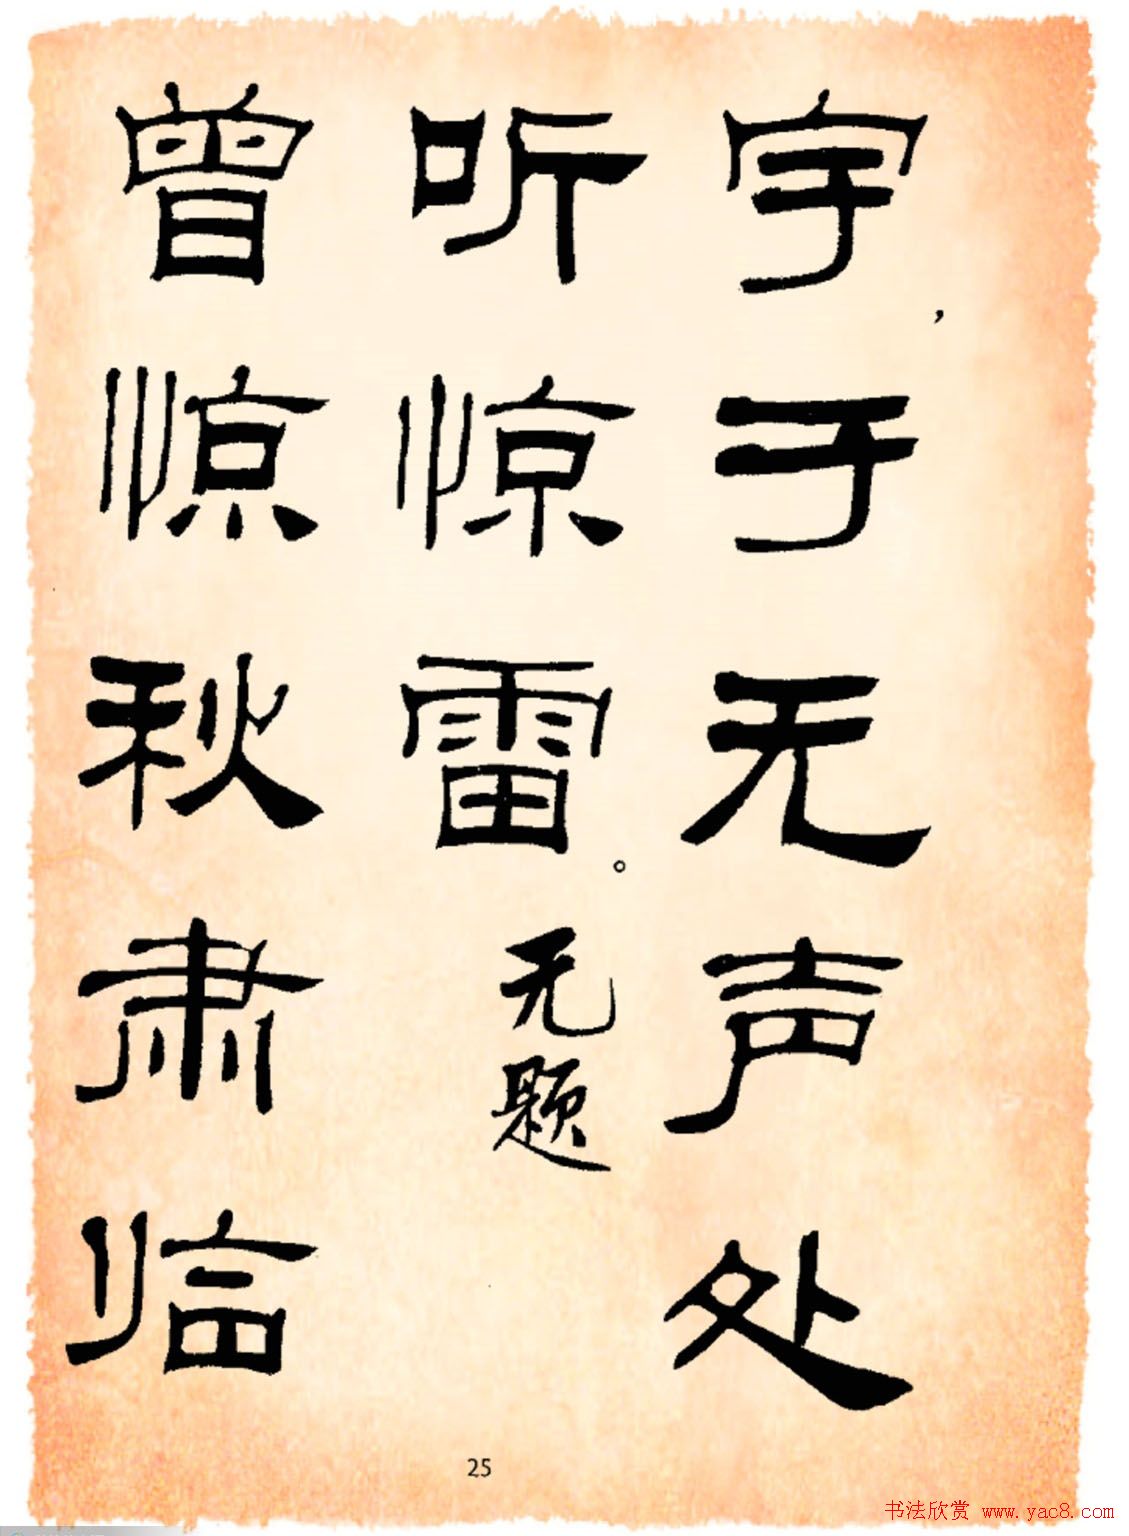 宇，于无声处
听惊雷。无题
曾惊秋肃临
25
书法欣赏 www.yac8.com